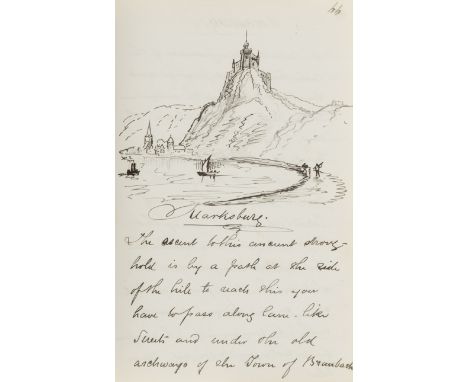 44
Marksburg.
The ascent to this ancient strong-
hold is by a path at the side
of the hill to reach this you
have to pass along lane-like
Streets and under the old
archways of the Town of Braubach